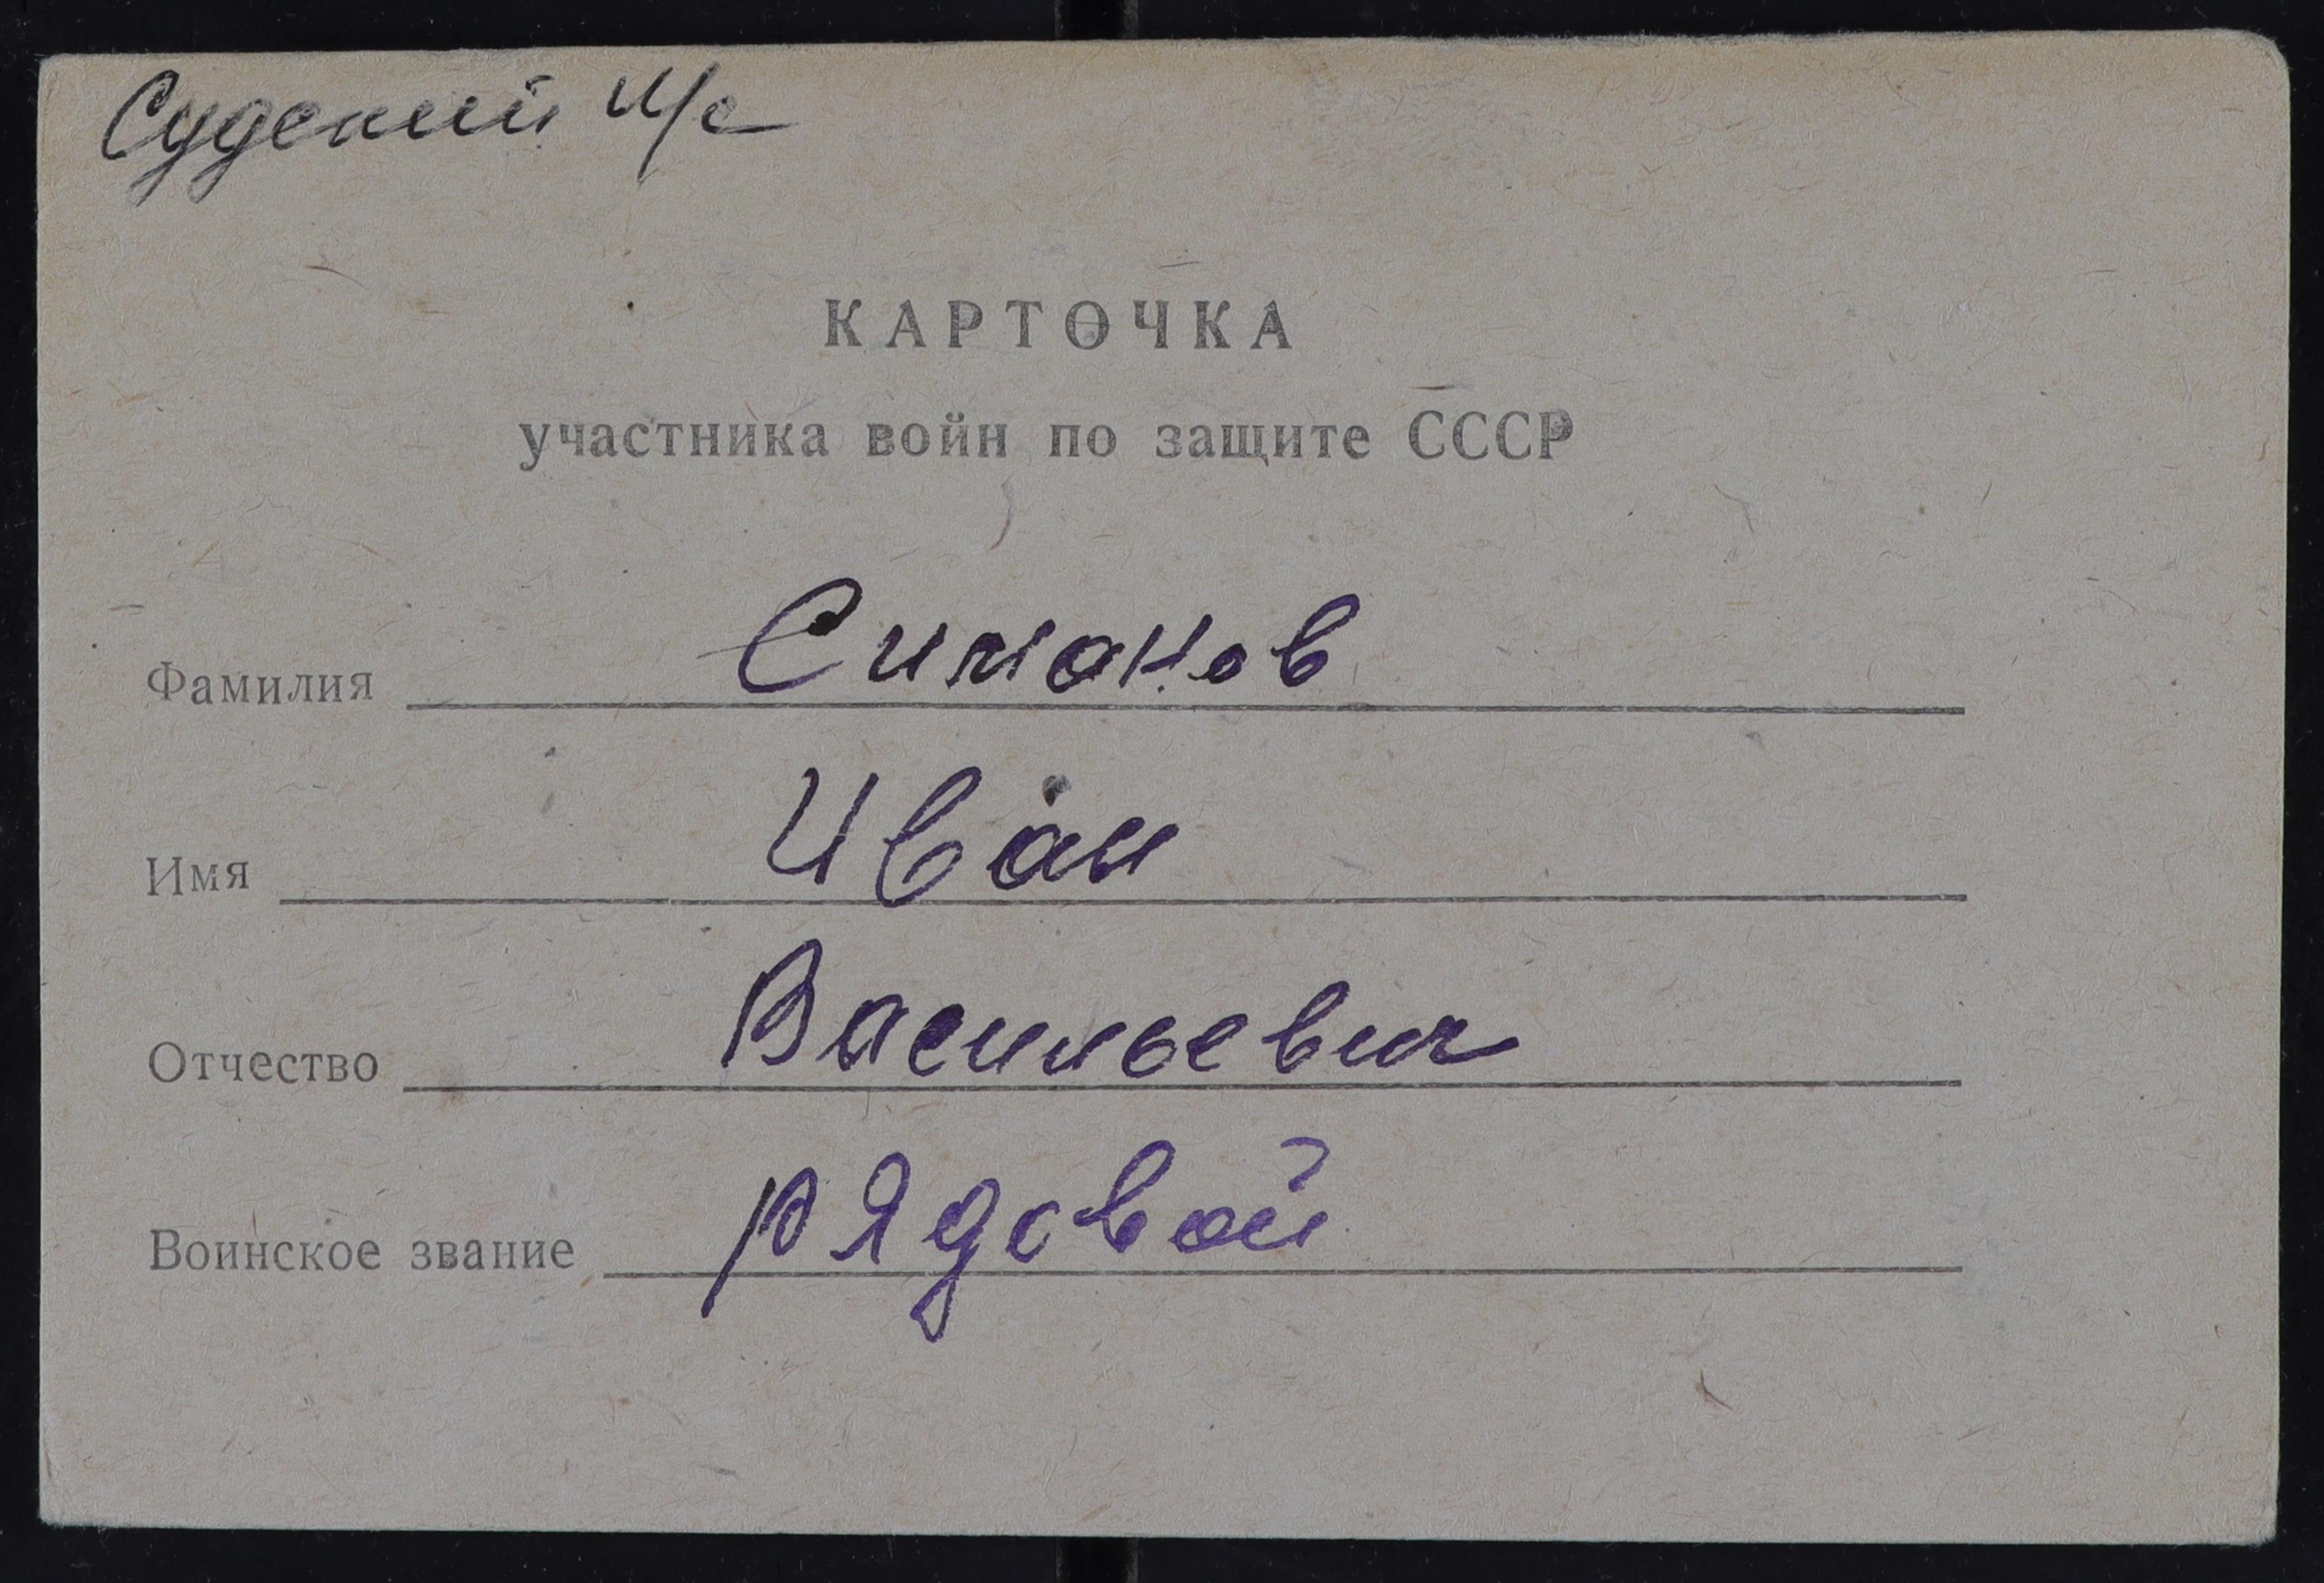 Судский с/с
КАРТОЧКА
участника войн по защите СССР
Фамилия Симонов
Имя Иван
Отчество Васильевич
Воинское звание рядовой